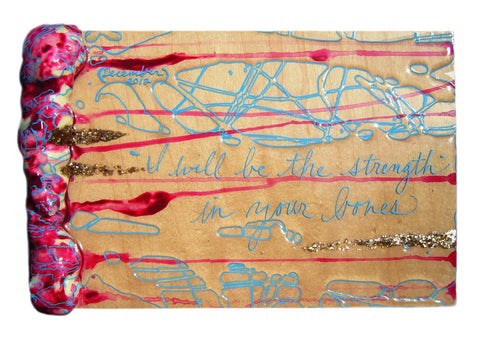 December
2012
"I will be the strength
in your bones